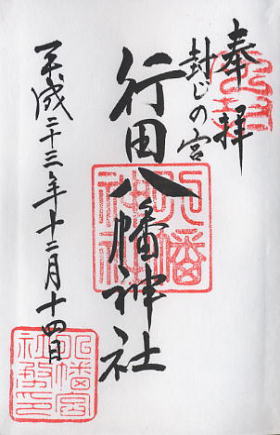 奉拝
封じの宮
行田八幡神社
平成二十三年十二月十四日
八幡神社
八幡宮社務所印